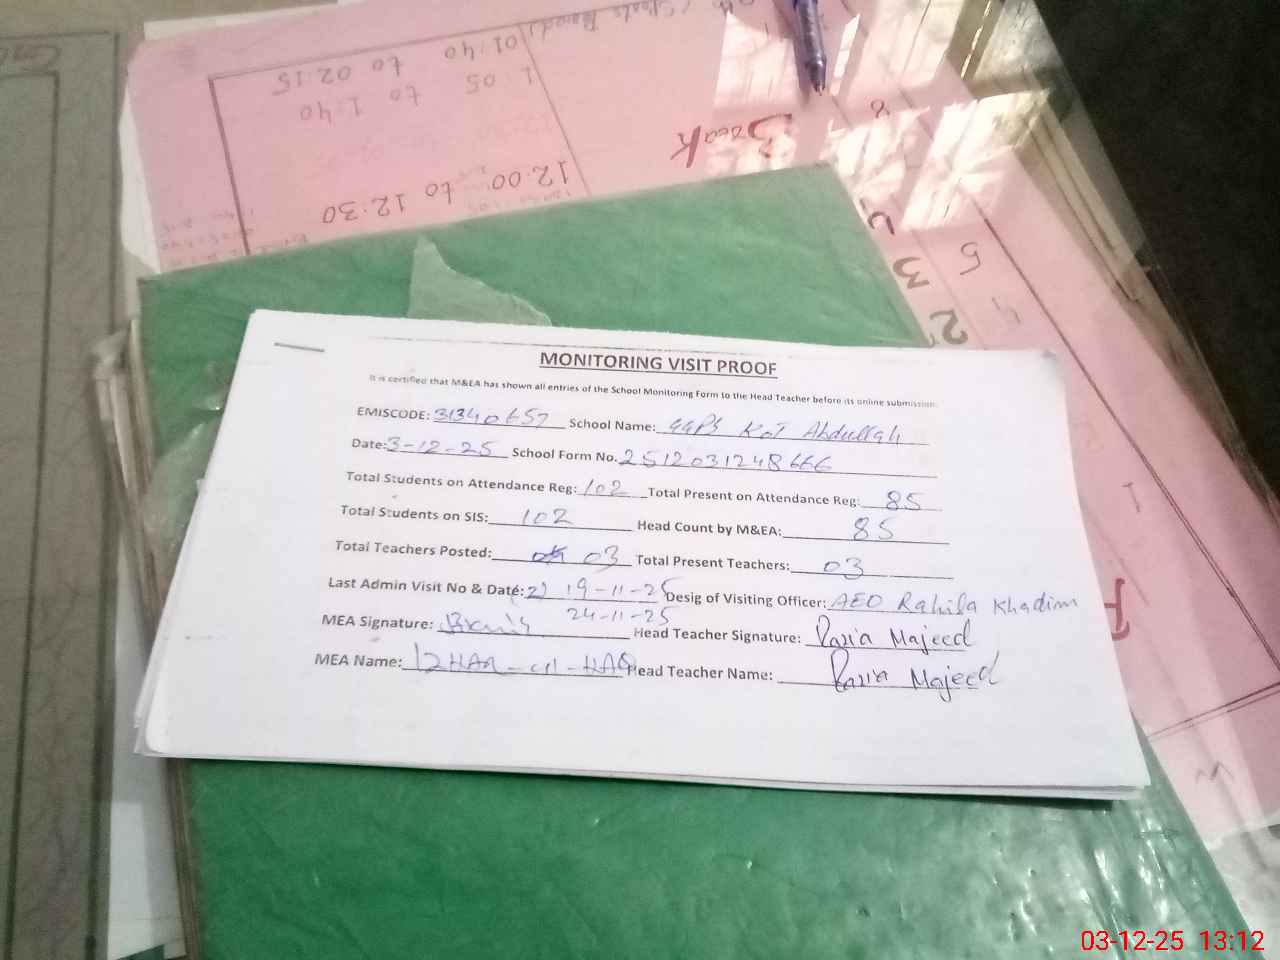 01:40 to 02:15
1:05 to 1:40
12:00 to 12:30
Break
8
5
3
2
MONITORING VISIT PROOF
It is certified that M&EA has shown all entries of the School Monitoring Form to the Head Teacher before its online submission.
EMISCODE: 31340657 School Name: GGPS KOT Abdullah
Date: 3-12-25 School Form No. 2512031248666
Total Students on Attendance Reg: 102 Total Present on Attendance Reg: 85
Total Students on SIS: 102 Head Count by M&EA: 85
Total Teachers Posted: 03 Total Present Teachers: 03
Last Admin Visit No & Date: 2) 19-11-25 Desig of Visiting Officer: AEO Rahila Khadim
24-11-25
MEA Signature: Head Teacher Signature: Razia Majeed
MEA Name: IZHAR-ul-HAQ Head Teacher Name: Razia Majeed
03-12-25 13:12